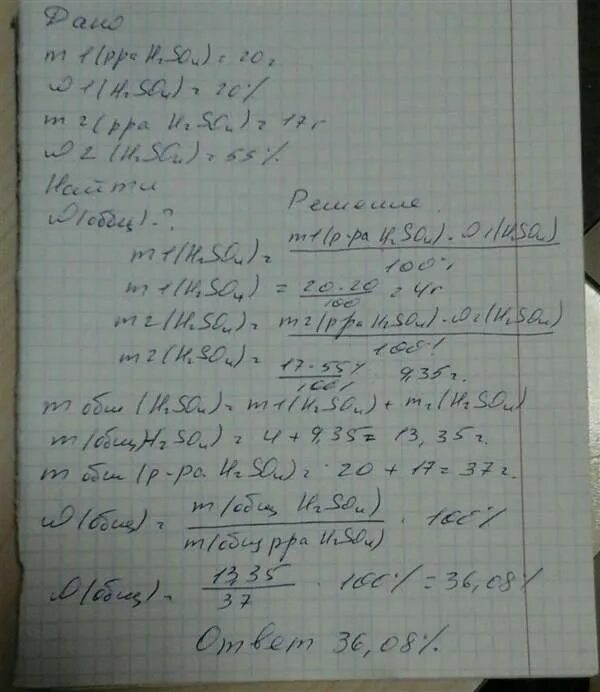 Дано
m1(рра H₂SO₄) = 20г
ω1(H₂SO₄) = 20%
m2(рра H₂SO₄) = 17г
ω2(H₂SO₄) = 55%.
Найти
ω(общ) - ?
Решение
m1(H₂SO₄) = m1(р-ра H₂SO₄) · ω1(H₂SO₄) / 100%
m1(H₂SO₄) = 20·20 / 100 = 4г
m2(H₂SO₄) = m2(рра H₂SO₄) · ω2(H₂SO₄) / 100%
m2(H₂SO₄) = 17·55% / 100% 9,35г.
m общ (H₂SO₄) = m1(H₂SO₄) + m2(H₂SO₄)
m(общ H₂SO₄) = 4 + 9,35 = 13,35г.
m общ (р-ра H₂SO₄) = 20 + 17 = 37г.
ω(общ) = m(общ H₂SO₄) / m(общ рра H₂SO₄) · 100%
ω(общ) = 13,35 / 37 · 100% = 36,08%
Ответ 36,08%.